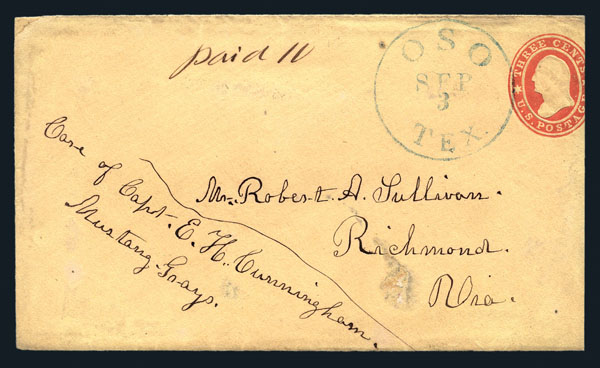 paid 10
OSO
SEP
3
TEX.
THREE CENTS
U.S. POSTAGE
Mr. Robert A. Sullivan.
Richmond.
Via.
Care of Capt. E. H. Cunningham.
Mustang Grays.